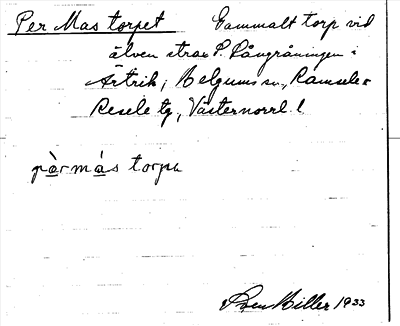 Per Mas torpet Gammalt torp vid
älven strax S. Långråningen i
Ärtrik, Helgums sn., Ramsele o
Resele tg., Västernorrl. l.
pàrmás torpə
Miller 1933